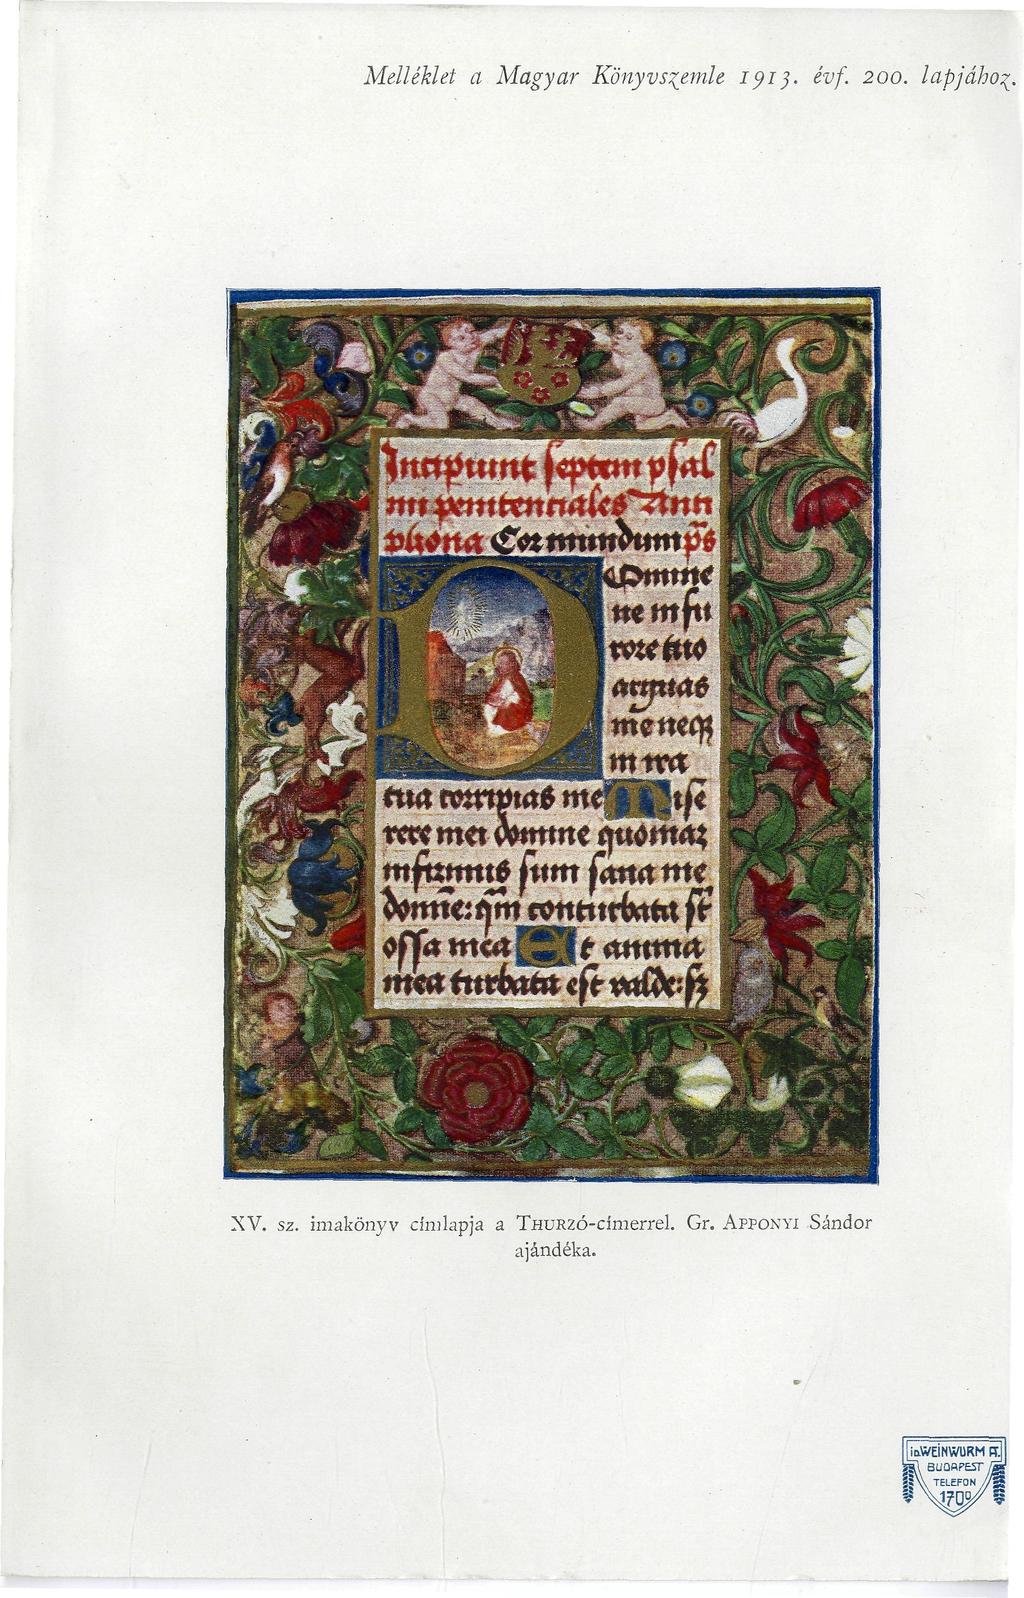 Melléklet a Magyar Könyvszemle 1913. évf. 200. lapjához.
Incipiunt septem psal
mi penitenciales Anti
phona Cor mundum ps
Domine
ne in fu
rore tuo
arguas
me neqꝫ
in ira
tua corripias me Mise
rere mei domine quoniaꝫ
infirmus sum sana me
domine: qm̄ conturbata st̄
ossa mea Et anima
mea turbata est valde: sꝫ
XV. sz. imakönyv címlapja a Thurzó-címerrel. Gr. Apponyi Sándor
ajándéka.
ifj. WEINWURM A.
BUDAPEST
TELEFON
1700